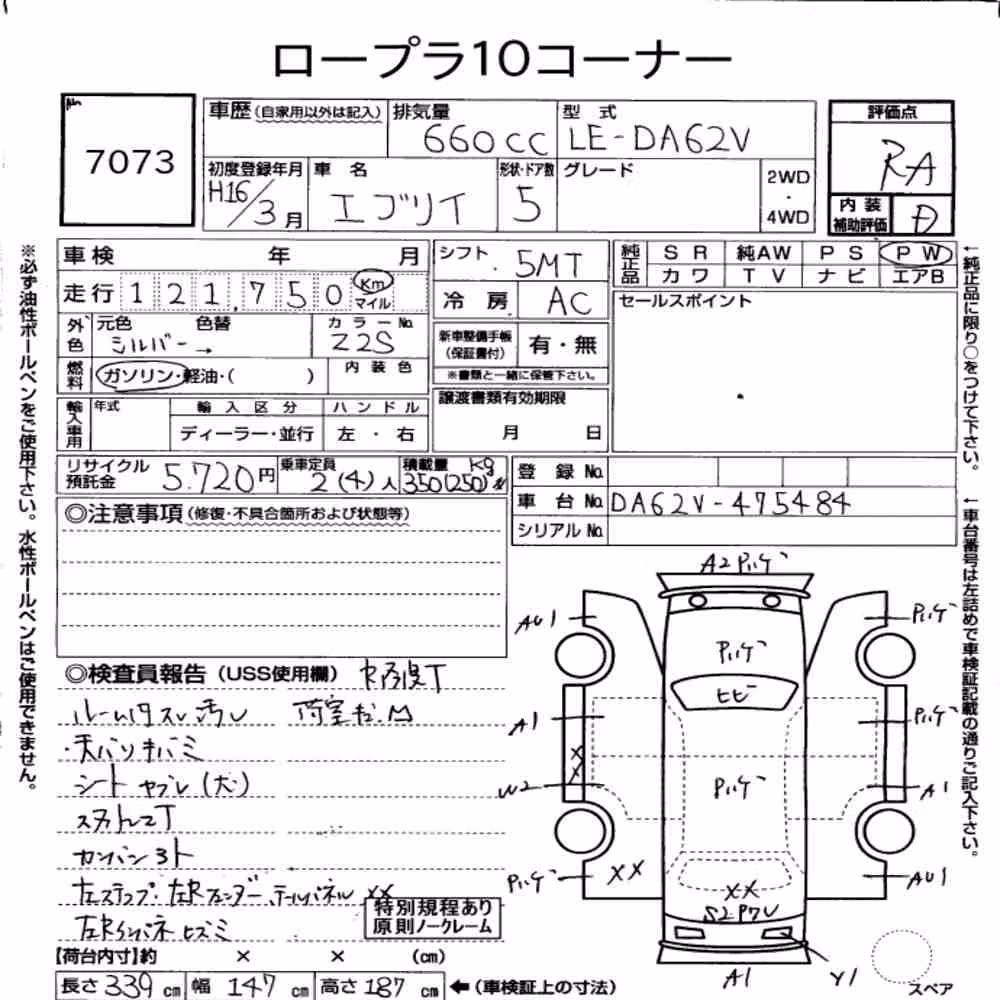 ロープラ10コーナー
7073
車歴(自家用以外は記入)
排気量
660cc
型 式
LE-DA62V
評価点
RA
初度登録年月
H16/3月
車 名
エブリイ
形状・ドア数
5
グレード
2WD
・
4WD
内 装
補助評価
D
車検 年 月
シフト
5MT
純正品
S R 純AW P S P W
カワ T V ナビ エアB
走行 121,750 Km
マイル
冷 房 AC
セールスポイント
外色
元色 色替
シルバー →
カラーNo.
Z2S
新車整備手帳
(保証書付)
有・無
※書類と一緒に保管下さい。
燃料
ガソリン・軽油・( )
内 装 色
譲渡書類有効期限
月 日
輸入車用
年式
輸 入 区 分
ハ ン ド ル
ディーラー・並行
左 ・ 右
リサイクル
預託金
5.720円
乗車定員
2(4)人
積載量 kg
350(250)
登 録 No.
車 台 No. DA62V-475484
シリアル No.
◎注意事項(修復・不具合箇所および状態等)
◎検査員報告(USS使用欄)
ルーム内スレ汚レ
天バリキバミ
シートヤブレ(大)
カンバン3ト
左ステップ・左Rフェンダー・テールパネル XX
左Rインパネ ヒズミ
特別規程あり
原則ノークレーム
【荷台内寸】約 × × (cm)
長さ 339 cm 幅 147 cm 高さ 187 cm ←(車検証上の寸法)
A2 Pハゲ
AU1
Pハゲ
Pハゲ
ヒビ
A1
Pハゲ
XX
Pハゲ
W2
A1
Pハゲ
XX
XX
AU1
A1
Y1
スペア
※必ず油性ボールペンをご使用下さい。水性ボールペンはご使用できません。
←純正品に限り○をつけて下さい。
←車台番号は左詰めで車検証記載の通りご記入下さい。